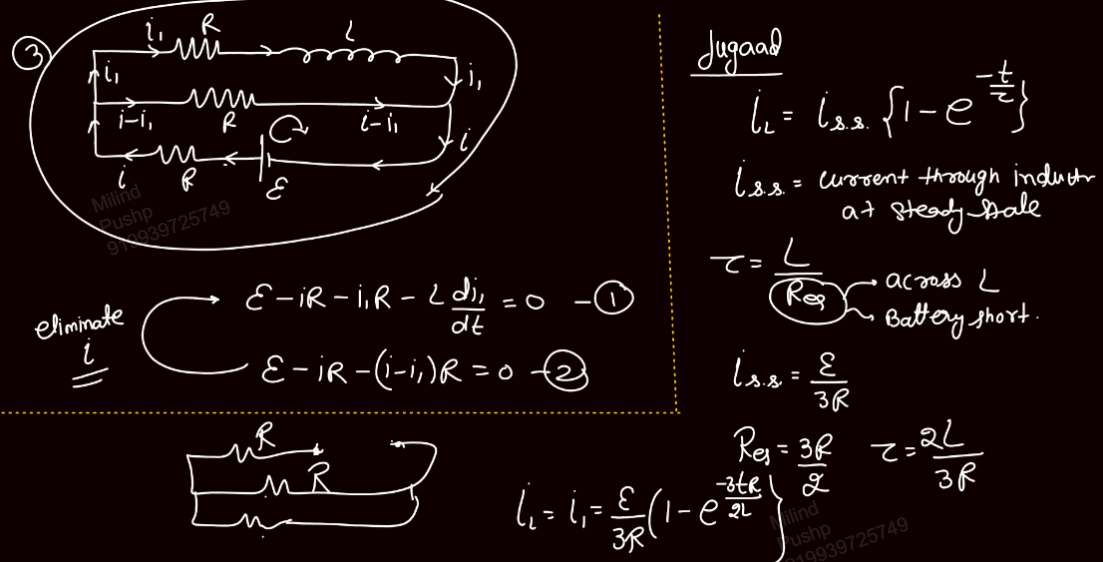 ③
i₁ R L
i₁ i₁
i-i₁ R i-i₁
i R ε i
Milind
Pushp
919939725749
eliminate
i
ε - iR - i₁R - L di₁/dt = 0 - ①
ε - iR - (i-i₁)R = 0 - ②
R
R
Jugaad
i_L = i_s.s. {1 - e^(-t/τ)}
i_s.s. = current through inductr
at steady state
τ = L/Req → across L
→ Battery short.
i_s.s. = ε/3R
Req = 3R/2 τ = 2L/3R
i_L = i₁ = ε/3R (1 - e^(-3tR/2L)}
Milind
Pushp
919939725749